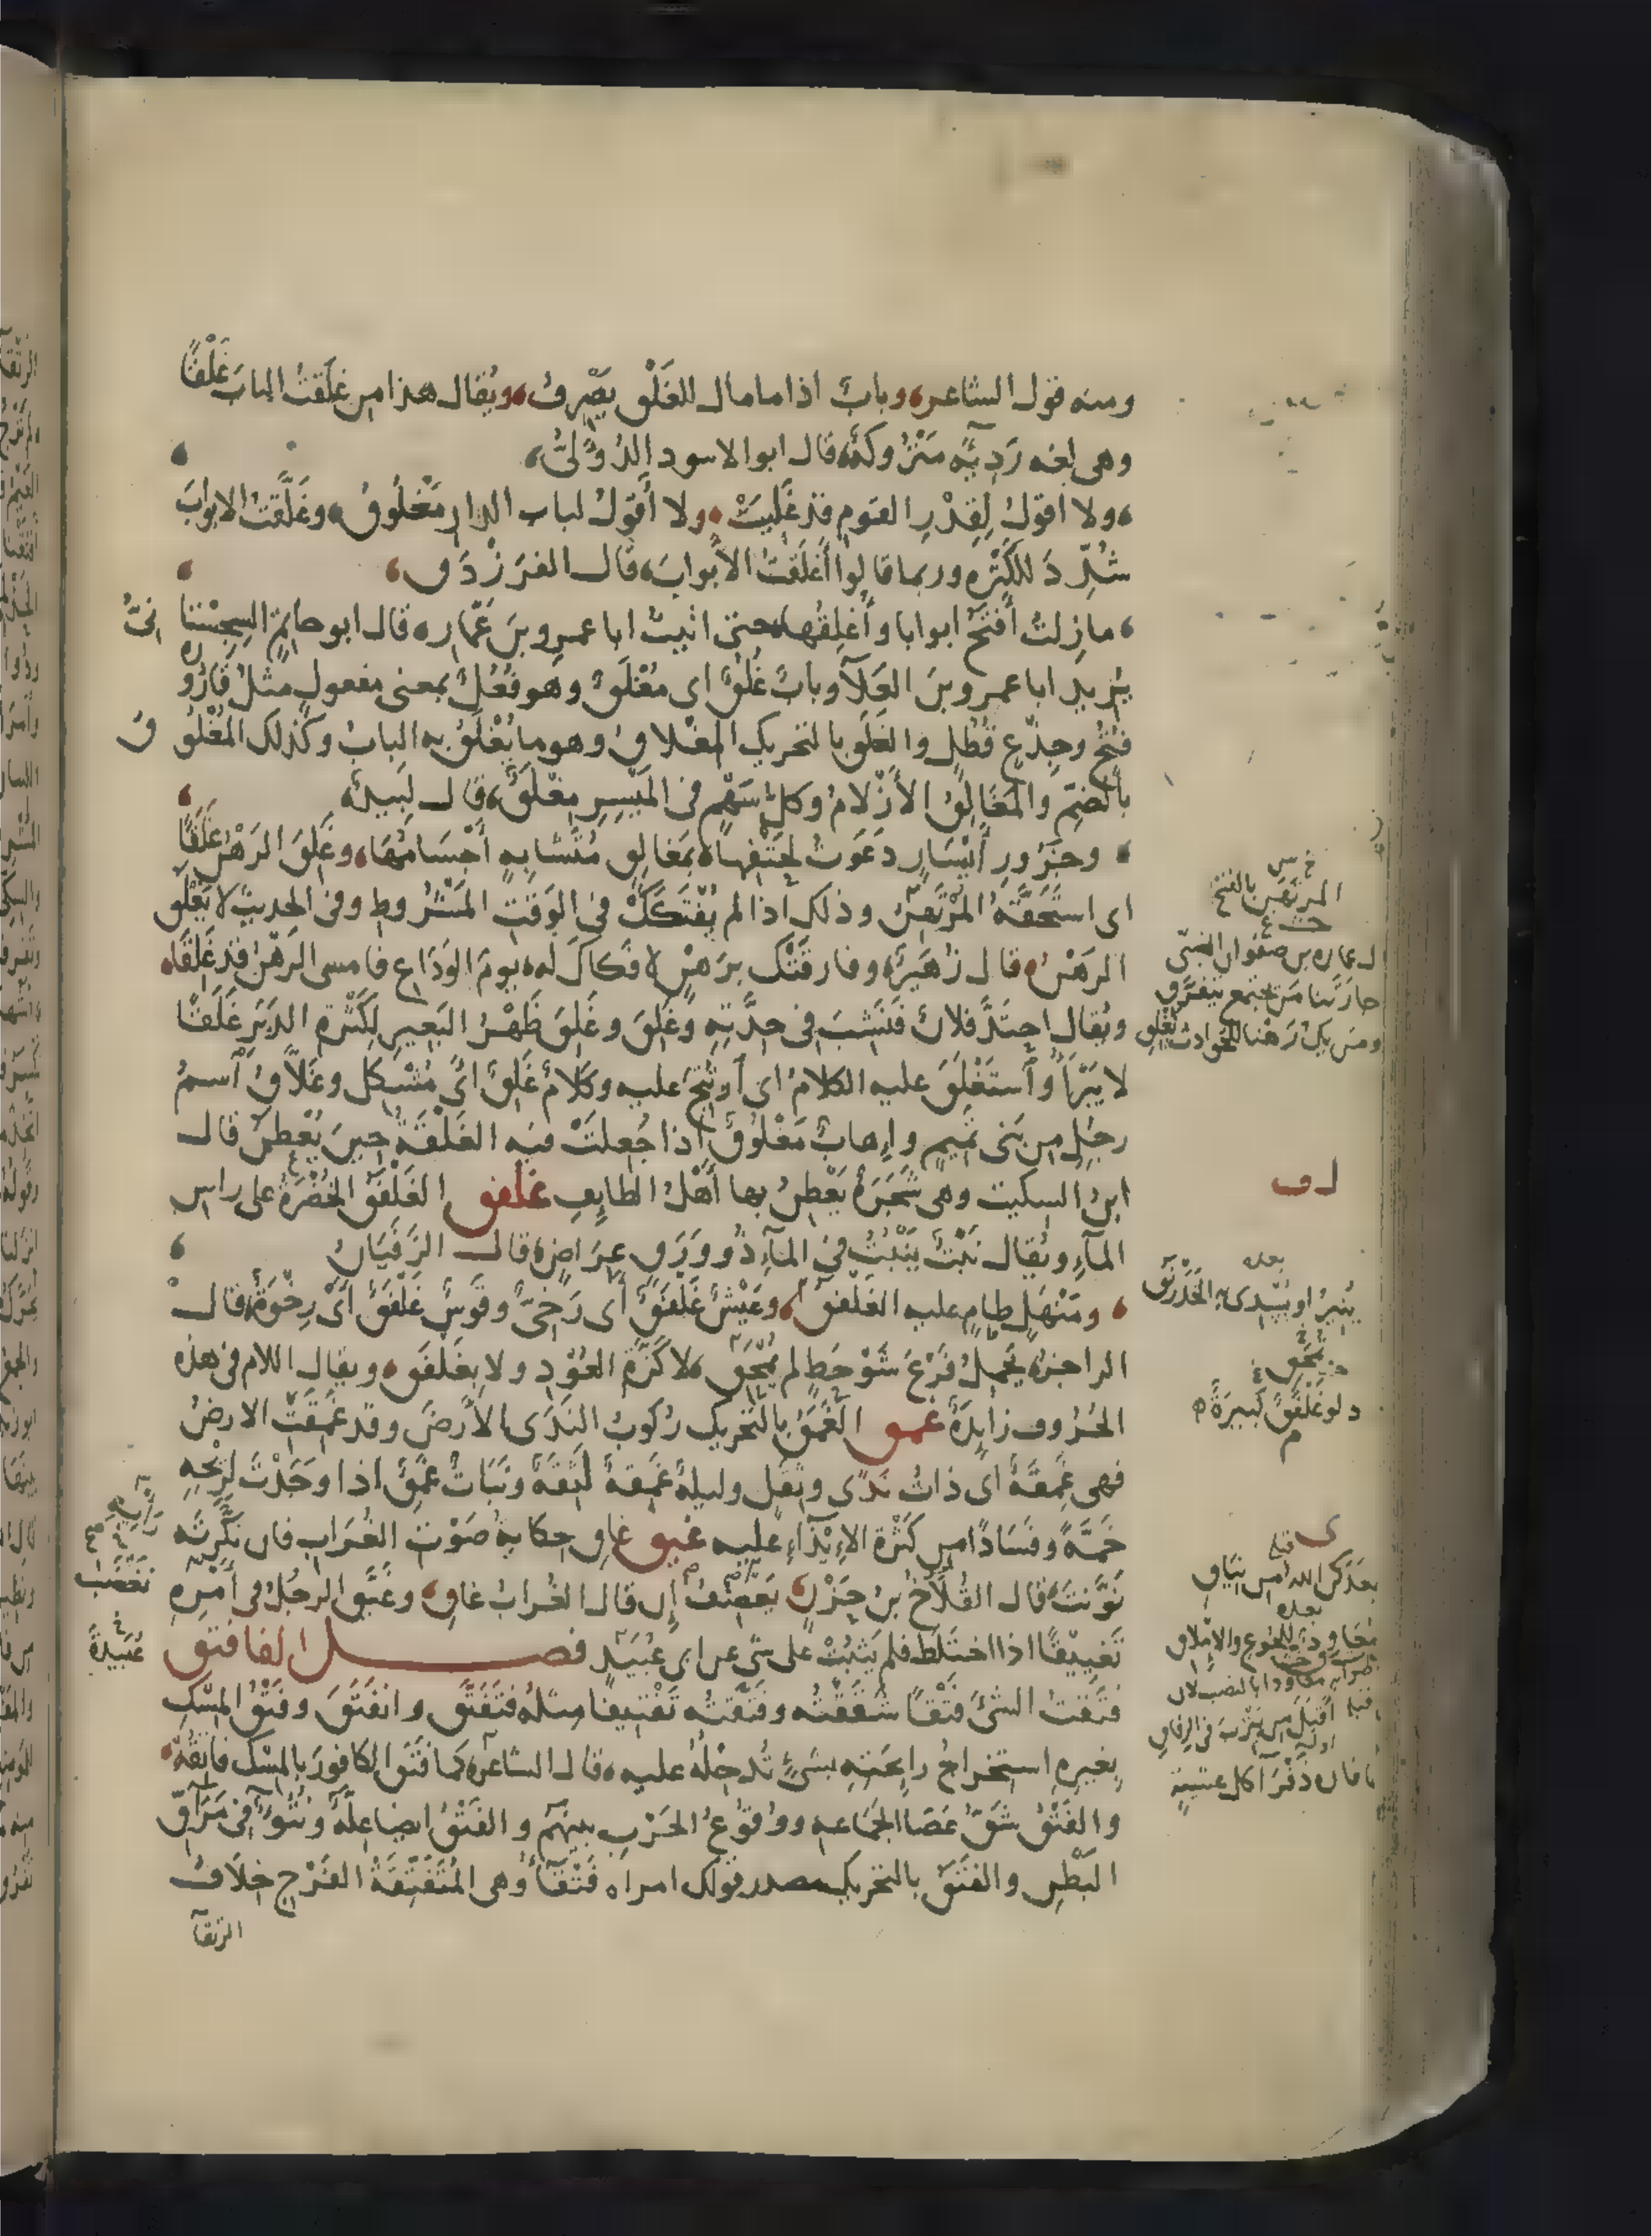 ومنه قول الشاعر، وباب اذا ما مال للغلق يصرف، ويقال هذا من غلقت الباب غلقا
وهي لغه رديه متروكه، قال ابو الاسود الدؤلي،
ولا اقول لقدر القوم قد غليت، ولا أقول لباب الدار مغلوق، وغلقت الابواب
شدد للكثره وربما قالوا أغلقت الأبواب، قال الفرزدق،
ما زلت أفتح ابوابا وأغلقها حتى اتيت ابا عمرو بن عمار، قال ابو حاتم السجستا نى
يريد ابا عمرو بن العلآ وباب غلق اى مغلق وهو فعل بمعنى مفعول مثل قارورة
فتح وجذع قطل والغلق بالتحريك المغلاق وهو ما يغلق به الباب وكذلك المغلو ق
بالضم والمغالق الأزلام وكل سهم فى الميسر مغلق، قال لبيد،
وجزور أيسار دعوت لحتفها، بمغالق متشابه أجسامها، وغلق الرهن غلقا
اى استحقه المرتهن وذلك اذا لم يفتكك فى الوقت المشروط وفى الحديث لا يغلق
الرهن، قال زهير، وفارقتك برهن لا فكاك له، يوم الوداع فامسى الرهن قد غلقا،
ويقال احتد فلان فنشب فى حدته وغلق وغلق ظهر البعير لكثرة الدبر غلقا
لا يبرأ وأستغلق عليه الكلام اى أرتج عليه وكلام غلق اى مشكل وغلاق آسم
رجل من بنى تميم وإهاب مغلوق اذا جعلت فيه الغلقة حين يعطن قال
ابن السكيت وهى شجرة يعطن بها أهل الطايف غلفق الغلفق الخضرة على راس
المآء ويقال نبت ينبت فى المآء ذو ورق عراض، قال الزفيان
ومنهل طام عليه الغلفق، وعيش غلفق أى رخى وقوس غلفق أى رخوة، قال
الراجز، يحمل فرع شوحط لم يمحق، لا كزة العود ولا بغلفق، ويقال اللام فى هذه
الحروف زايدة غمق الغمق بالتحريك ركوب الندى الأرض وقد غمقت الارض
فهى غمقة اى ذات ندى وثقل وليلة غمقة لثقة ونبات غمق اذا وجدت لريحه
خمة وفسادا من كثرة الاندآء عليه غيق غاق حكاية صوت الغراب فان نكرته
نونت، قال القلاخ بن حزن، إن قال الغراب غاق، وغيق الرجل فى أمره
تغييقا اذا اختلط فلم يثبت على شى عن ابى عبيد فصل الفا فتق
فتقت الشئ فتقا شققته وفتقته تفتيقا مثله فتفتق وانفتق وفتق المسك
بغيره استخراج رايحته بشئ تدخله عليه، قال الشاعر، كما فتق الكافور بالمسك فاتقه،
والفتق شق عصا الجماعه ووقوع الحرب بينهم والفتق ايضا علة ونتوء فى مراق
البطن والفتق بالتحريك مصدر قولك امراه فتقآء وهى المنفتقة الفرج خلاف
الرتقآ
المرتهن بالفتح
عماره بن صفوان الضبى
جارتنا من يجتمع يتفرق
ومن يك رهنا للحوادث يغلق
بعده
ينير او يسدى به الخدرنق
دلو غلفق كبيرة
قبله
بعده
معاود للجوع والإملاق
عبيدة